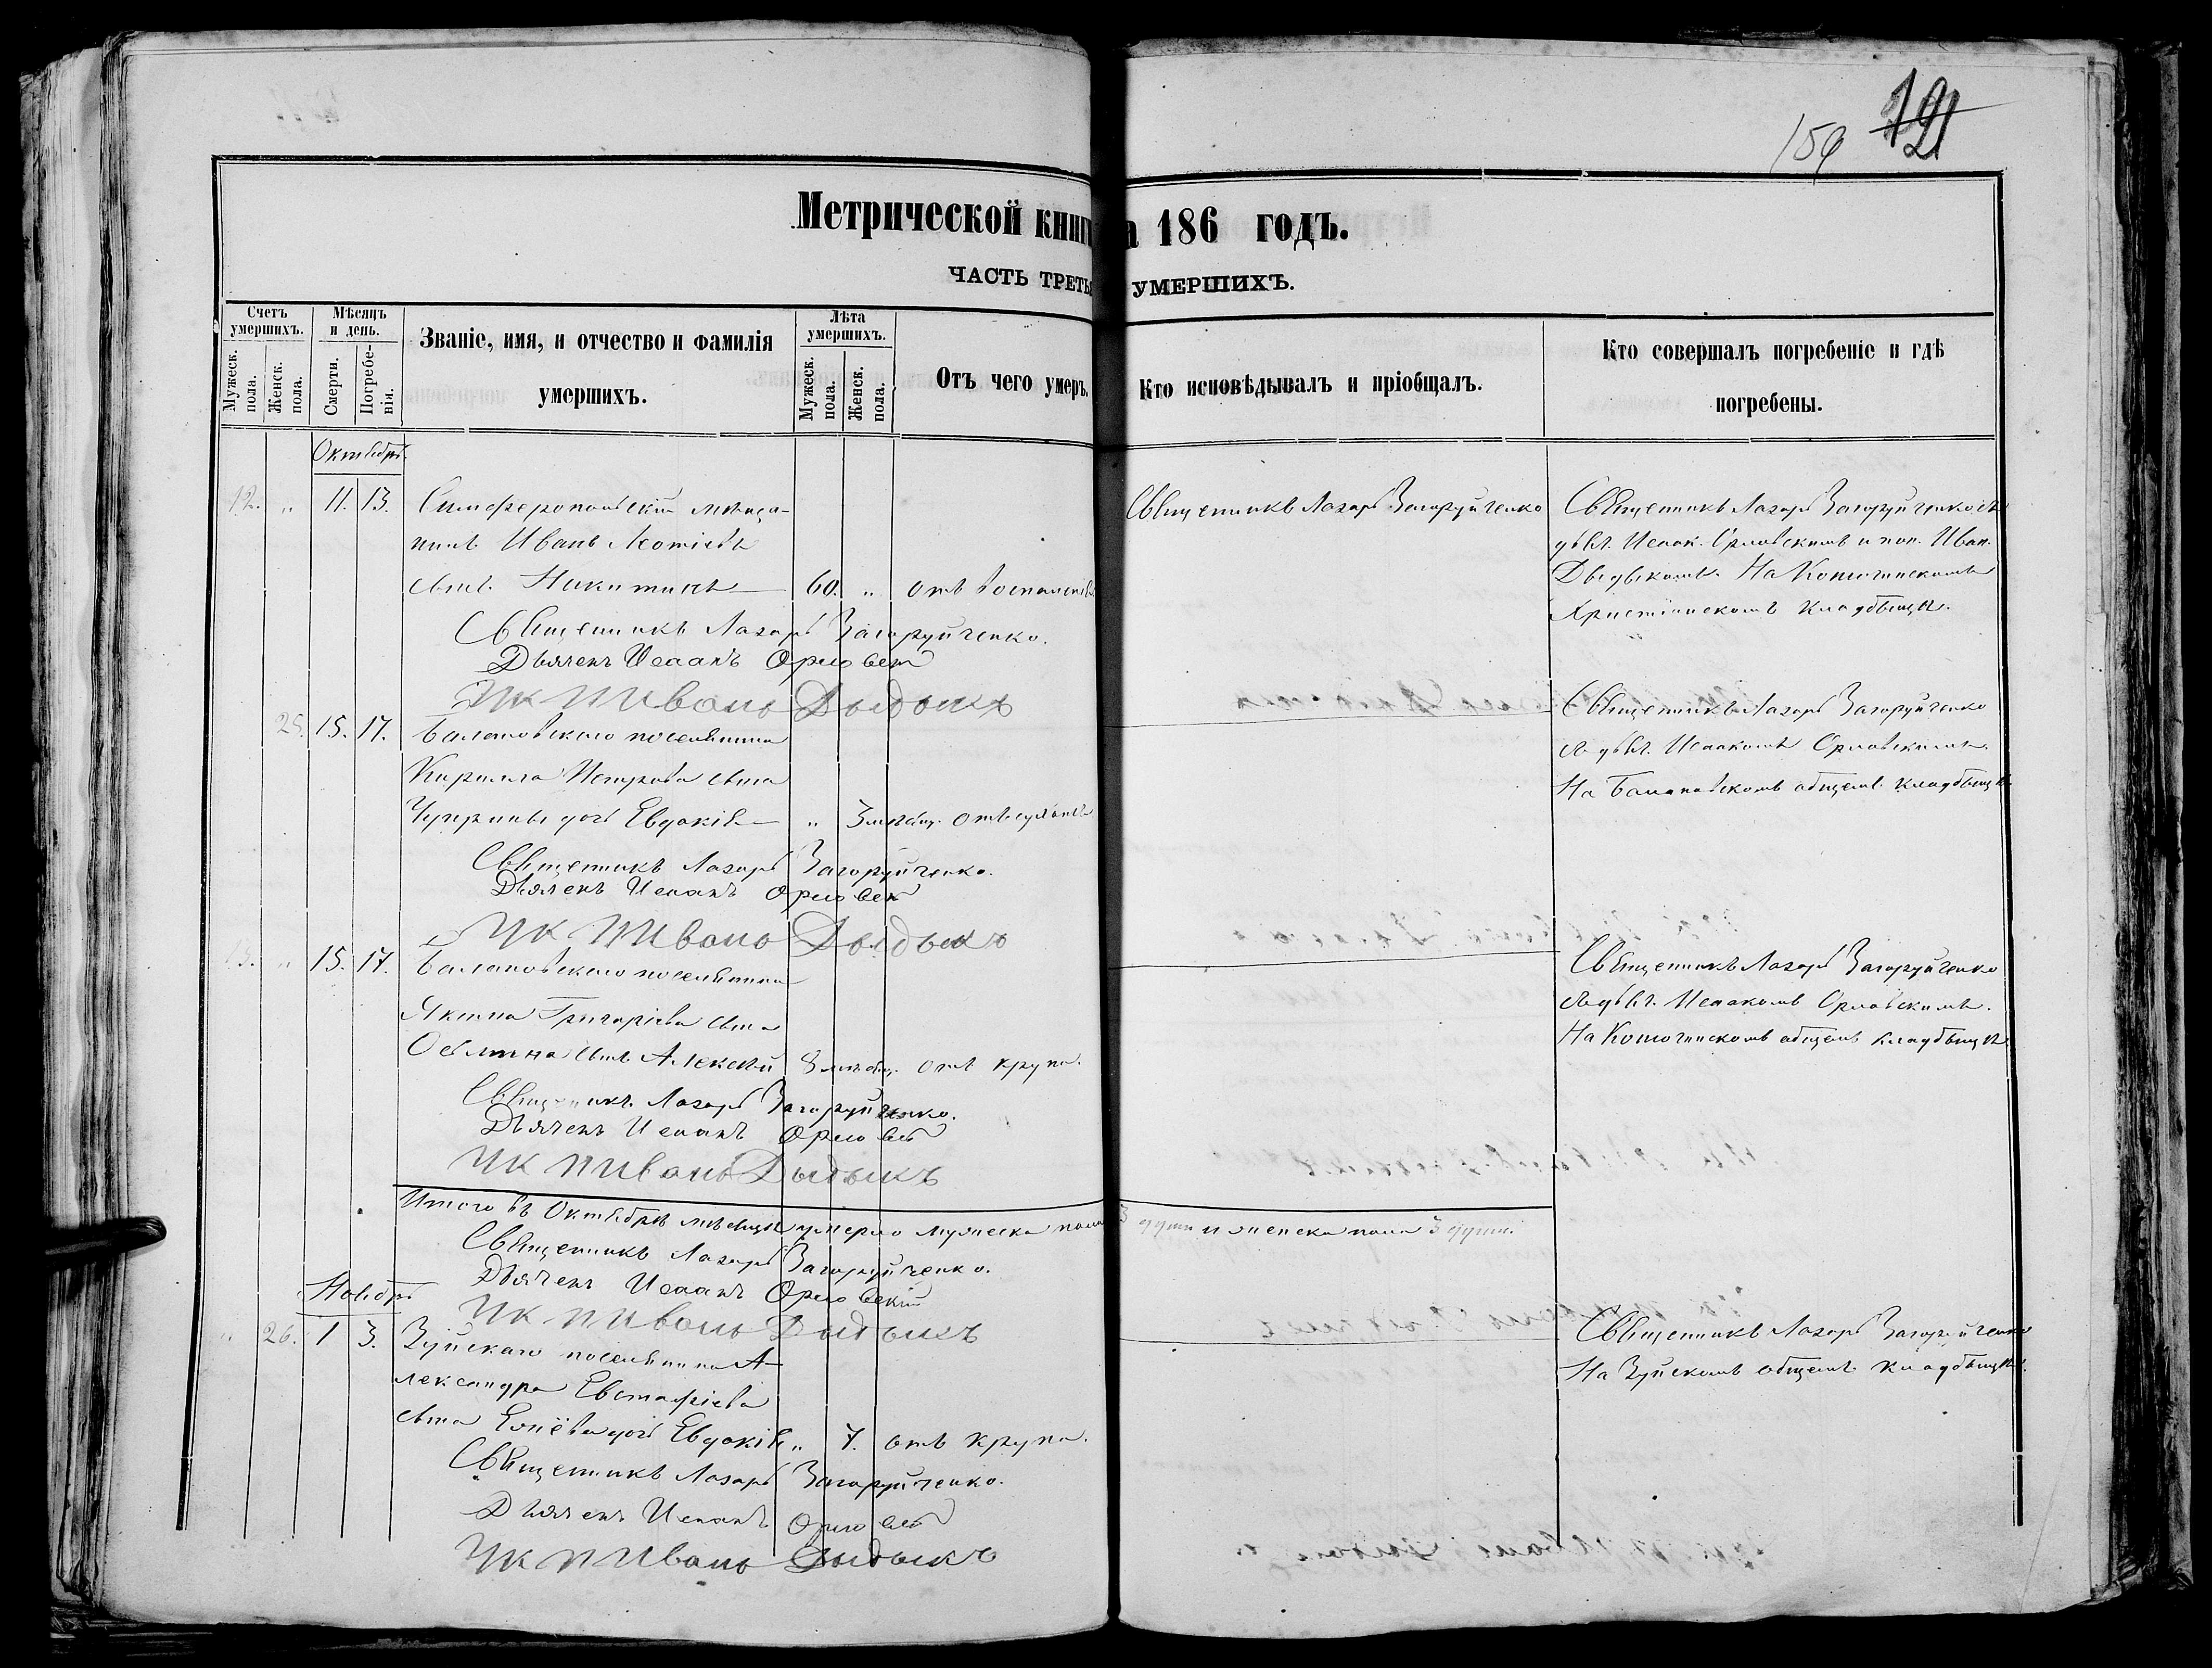 159 121
Метрической книги на 186 годъ.
ЧАСТЬ ТРЕТЬЯ УМЕРШИХЪ.
Счетъ умершихъ.
Мужеск. пола.
Женск. пола.
Мѣсяцъ и день.
Смерти.
Погребенія.
Званіе, имя, и отчество и фамилія
умершихъ.
Лѣта умершихъ.
Мужеск. пола.
Женск. пола.
Отъ чего умеръ.
Кто исповѣдывалъ и пріобщалъ.
Кто совершалъ погребеніе и гдѣ
погребены.
Октябрь.
12. „ 11. 13. Симферопольскій мѣща-
нинъ Иванъ
сынъ Никитинъ 60. „ отъ
Священникъ Лазарь Загоруйченко
Священникъ Лазарь Загоруйченко съ
дьяч. Исаак. Орловскимъ и пон. Иван.
Дыдыкомъ. На
Христіанскомъ кладбищѣ.
Священникъ Лазарь Загоруйченко.
Дьячекъ Исаакъ Орловскій
ИК П Иванъ Дыдыкъ
25. 15. 17. Балановскаго поселянина
Кирилла Петрова сына
Чуприны дочь Евдокія „ 3 мѣсяц. отъ
Священникъ Лазарь Загоруйченко
съ дьяч. Исаакомъ Орловскимъ.
На Балановскомъ общем. кладбищѣ.
Священникъ Лазарь Загоруйченко.
Дьячекъ Исаакъ Орловскій
ИК П Иванъ Дыдыкъ
13. „ 15. 17. Балановскаго поселянина
Григоріева сына
сынъ Алексѣй 8 мѣсяц. отъ крупа.
Священникъ Лазарь Загоруйченко
съ дьяч. Исаакомъ Орловскимъ.
На общемъ кладбищѣ.
Священникъ Лазарь Загоруйченко.
Дьячекъ Исаакъ Орловскій
ИК П Иванъ Дыдыкъ
Итого въ Октябрѣ мѣсяцѣ умерло мужеска пола 3 души и женска пола 3 души.
Священникъ Лазарь Загоруйченко.
Дьячекъ Исаакъ Орловскій
ИК П Иванъ Дыдыкъ
Ноябрь
„ 26. 1 3. Зуйскаго поселянина А-
лександра Евстафіева
сына дочь Евдокія „ 7. отъ крупа.
Священникъ Лазарь Загоруйченко
На Зуйскомъ общемъ кладбищѣ.
Священникъ Лазарь Загоруйченко.
Дьячекъ Исаакъ Орловскій
ИК П Иванъ Дыдыкъ